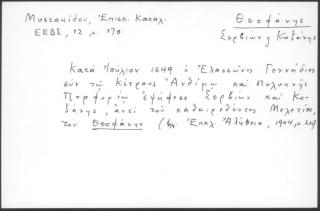 Μυστακίδου, Ἐπισκ. Κατάλ.
ΕΕΒΣ, 12, σ. 170
Θεοφάνης
Σερβίων, Κοζάνης
Κατὰ Ἰούλιον 1649 ὁ Ἐλασσῶνος Γεννάδιος
σὺν τῷ Κίτρους Ἀνθίμῳ καὶ Πολυανῆς
Πορφυρίῳ ἐψήφισε Σερβίων καὶ Κο-
ζάνης, ἀντὶ τοῦ καθαιρεθέντος Μελετίου,
τὸν Θεοφάνην (βλ. Ἐκκλ. Ἀλήθεια, 1904, σ.